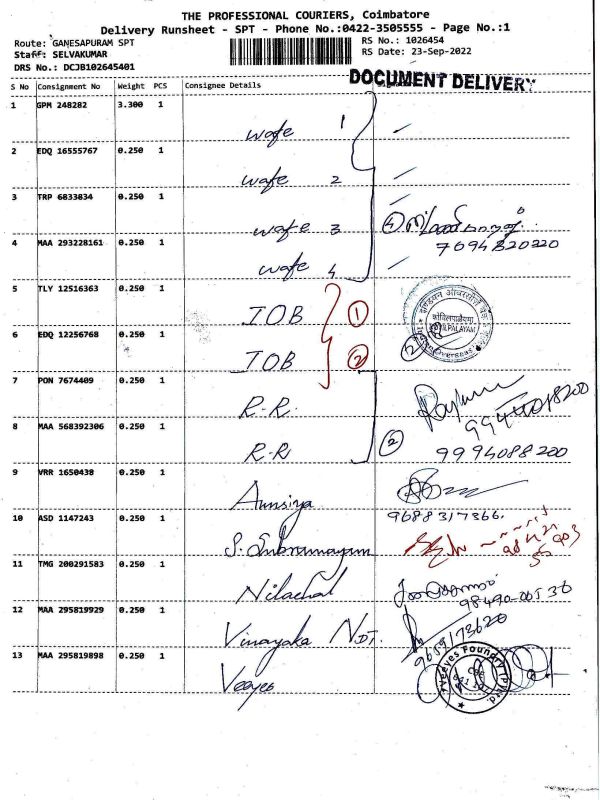 THE PROFESSIONAL COURIERS, Coimbatore
Delivery Runsheet - SPT - Phone No.:0422-3505555 - Page No.:1
Route: GANESAPURAM SPT
Staff: SELVAKUMAR
DRS No.: DCJB102645401
RS No.: 1026454
RS Date: 23-Sep-2022
S No Consignment No Weight PCS Consignee Details
DOCUMENT DELIVERY
1 GPM 248282 3.300 1
wafe 1
2 EDQ 16555767 0.250 1
wafe 2
3 TRP 6833034 0.250 1
wafe 3 4
7094820220
4 MAA 293228161 0.250 1
wafe 4
5 TLY 12516363 0.250 1
IOB 1
6 EDQ 12256768 0.250 1
IOB 2 2
7 PON 7674409 0.250 1
R.R.
8 MAA 568392306 0.250 1
R.R 2 9994088200
9 VRR 1650438 0.250 1
Annsiya
9688317366.
10 ASD 1147243 0.250 1
S. Subramayam
11 TMG 200291583 0.250 1
Nilachal
12 MAA 295819929 0.250 1
Vinayaka NDT.
9689173620
13 MAA 295819898 0.250 1
Veeyes
Veeyes Foundry (P) Ltd.